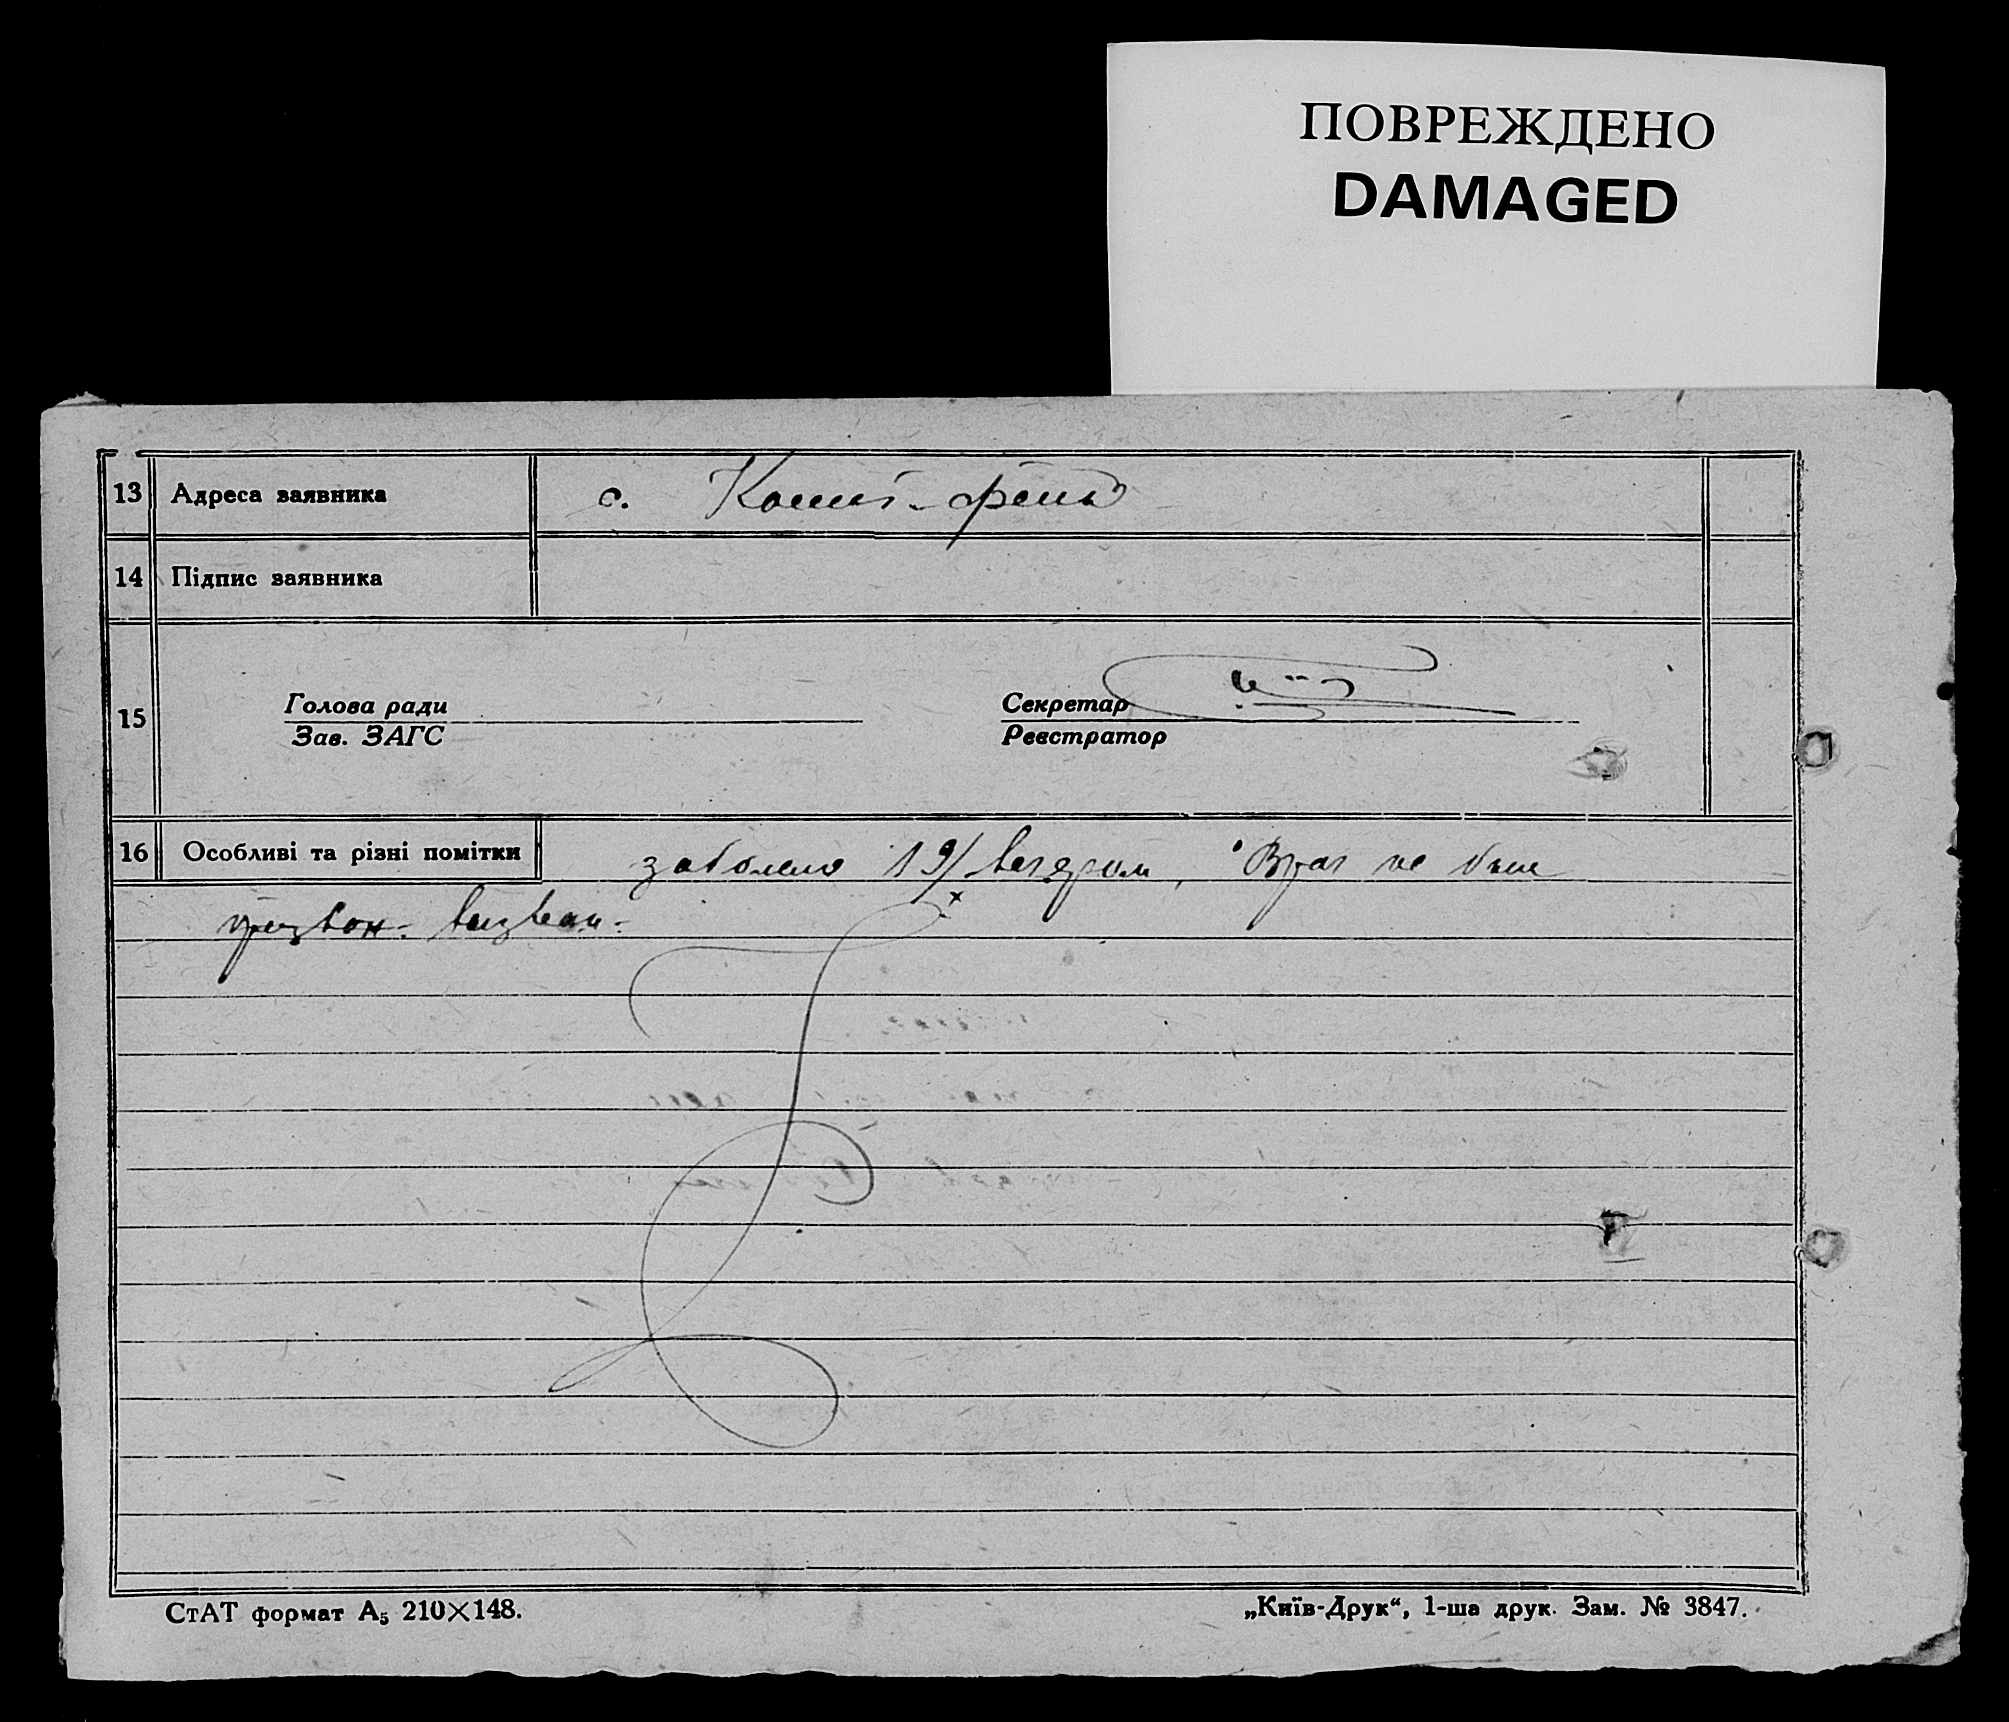 ПОВРЕЖДЕНО
DAMAGED
13 Адреса заявника с.
14 Підпис заявника
15
Голова ради
Зав. ЗАГС
Секретар
Реєстратор
16 Особливі та різні помітки заболела 19/ вечером, Врач не был
СтАТ формат А₅ 210×148.
„Київ-Друк“, 1-ша друк. Зам. № 3847.